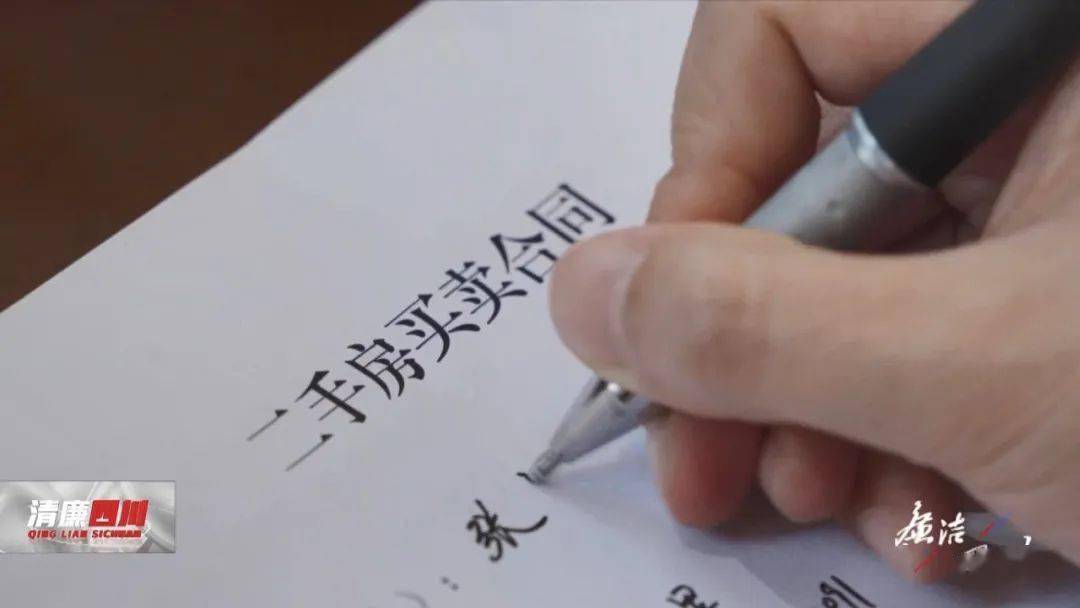 二手房买卖合同
：张
清廉四川
QING LIAN SICHUAN
廉洁